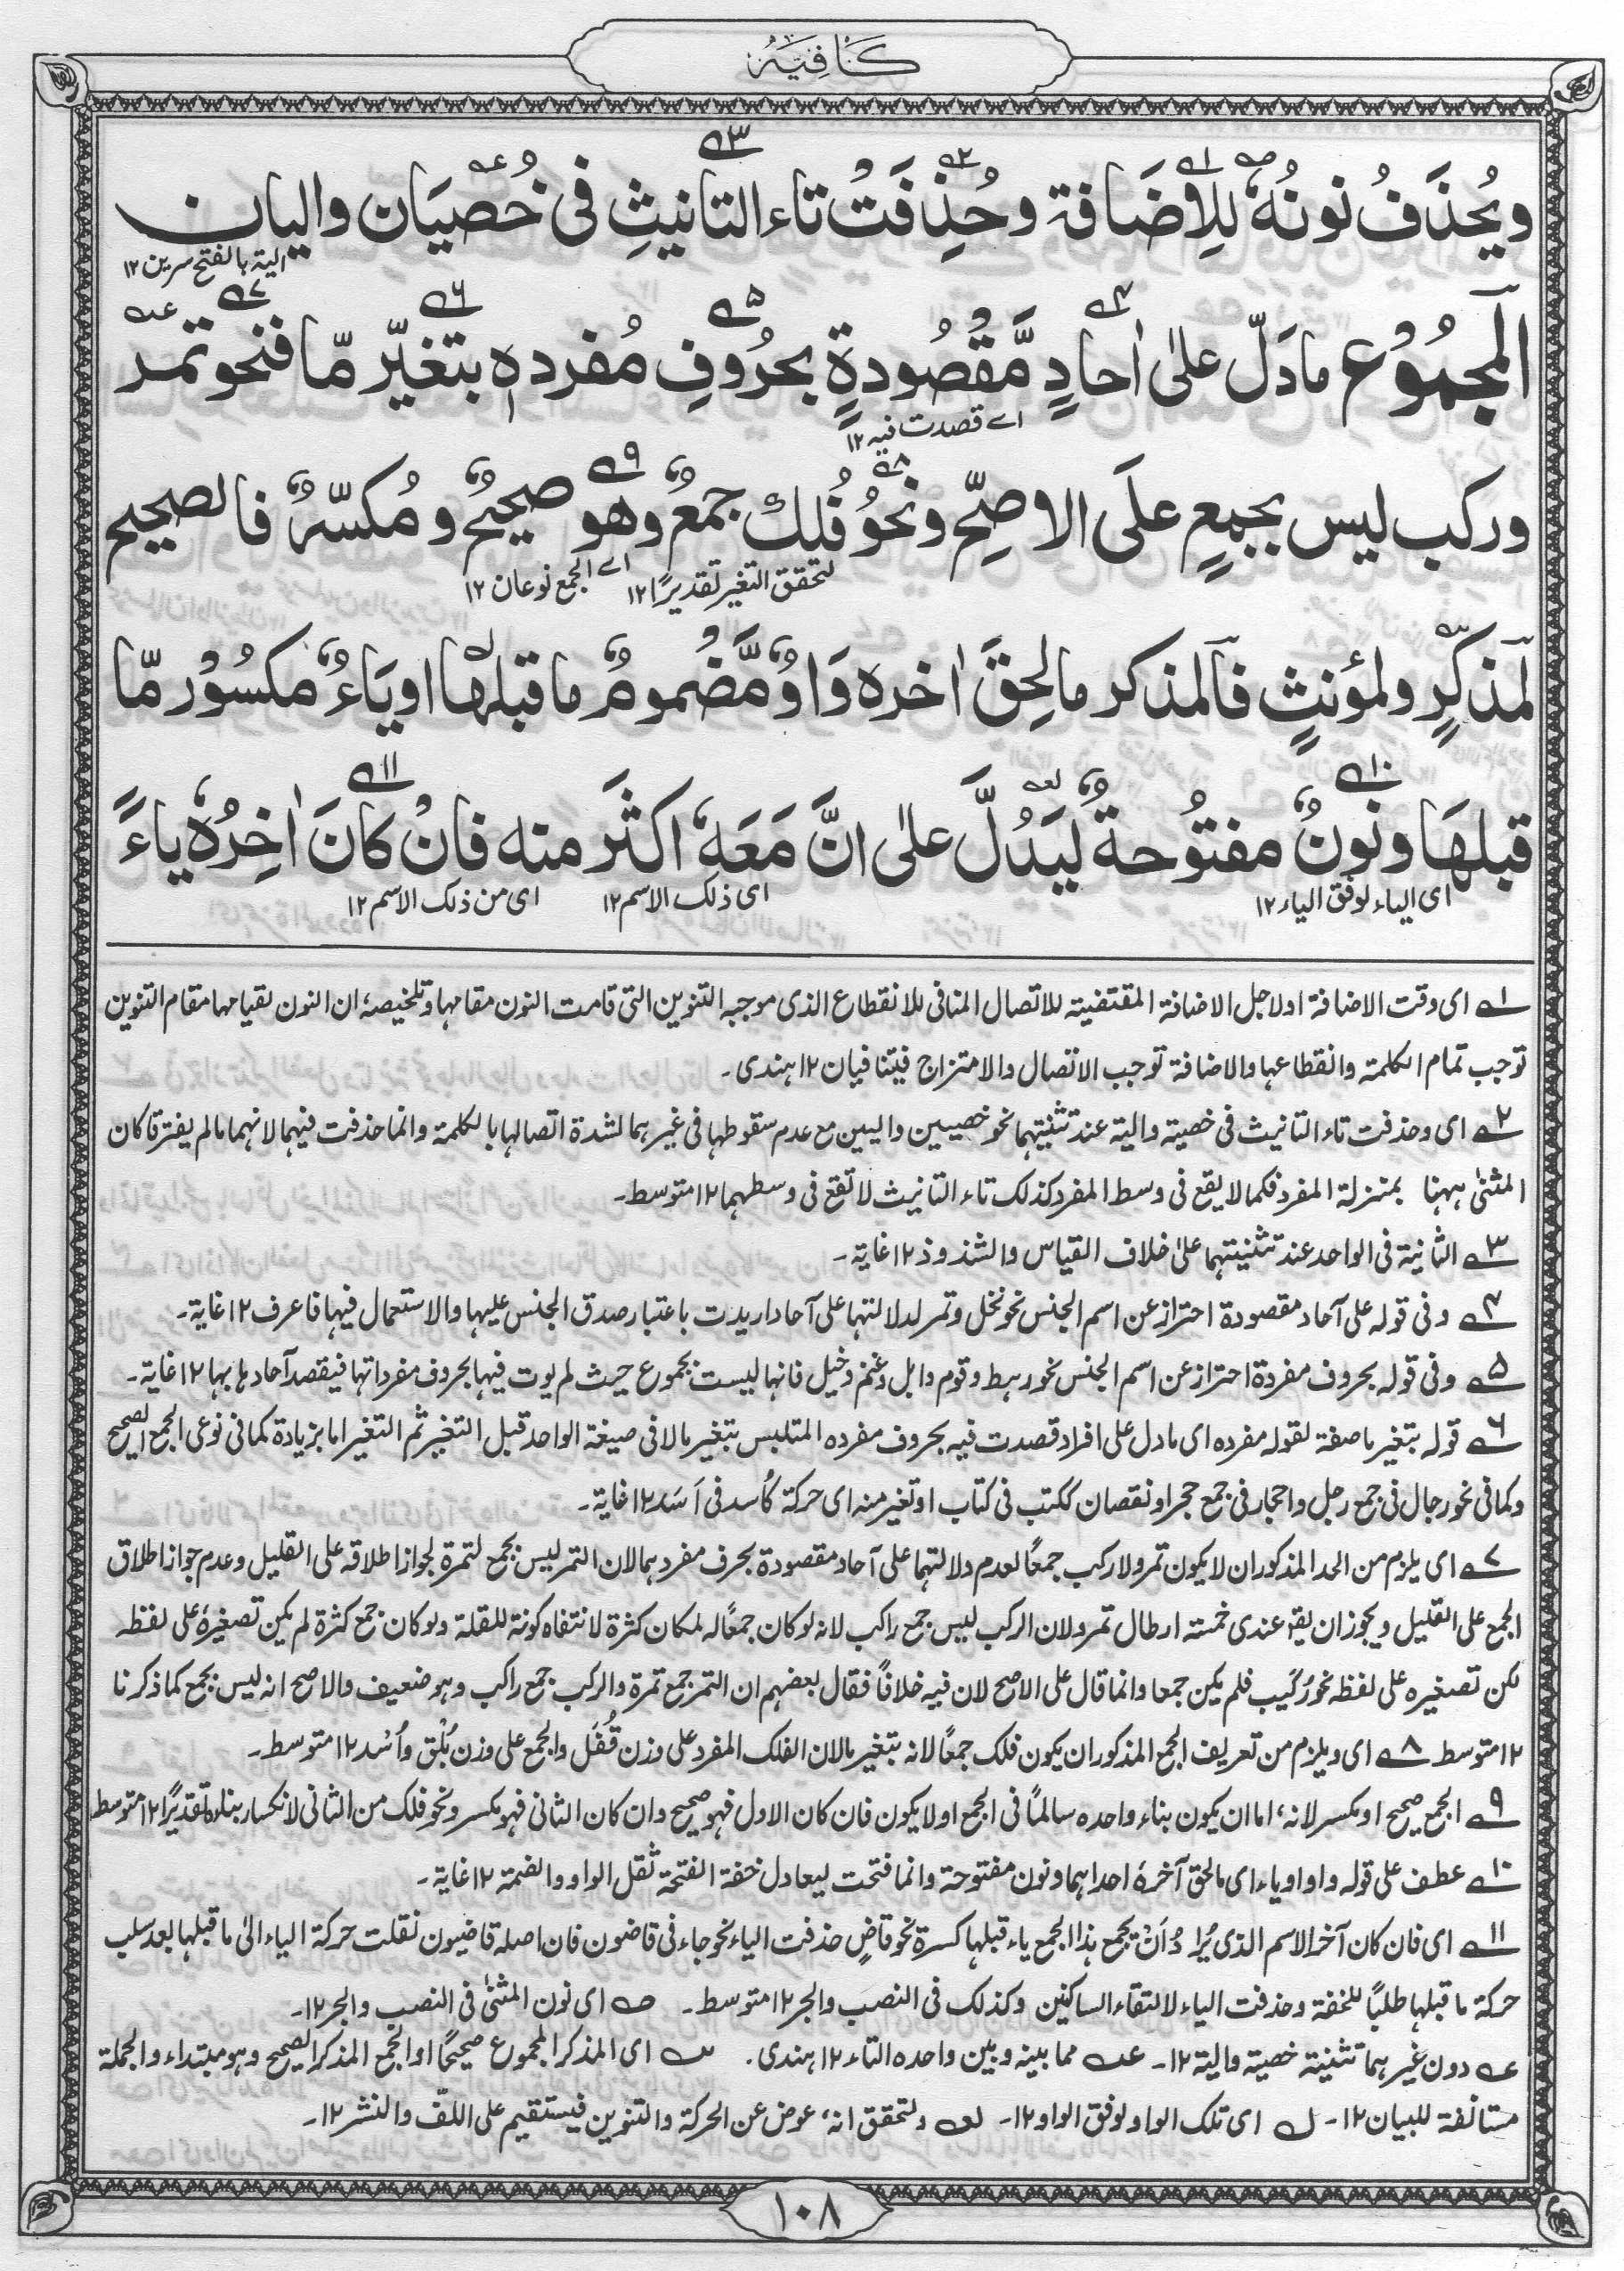 كَافِيَه
ويُحذَفُ نونُهٗ للِاِضَافة وحُذِفَتْ تاء التانيثِ فى خُصيَان واليان
الية بالفتح سرين ١٢
اَلمجمُوْع مادَلّ علىٰ اٰحادٍ مَّقْصُودةٍ بحرُوفِ مُفردهٖ بتغيّر مّا فنحو تمر
اے قصدت فيہ ١٢
وركب ليس بجمعٍ علَى الاصحِّ ونحوُ فُلك جمعٌ وهو صحيحٌ ومُكسّرٌ فالصحيح
لتحقق التغير تقديرًا ١٢ اے الجمع نوعان ١٢
لمذكّرٍ ولمؤنثٍ فاَلمذكر مالحِقَ اٰخره وَاوٌ مَّضْمومٌ ماقبلها اويَاءٌ مكسُوْر مّا
قبلهَا ونونٌ مفتوُحةٌ ليَدُلَّ علىٰ انَّ مَعَهٗ اكثَر منه فانْ كانَ اٰخِرُهٗ ياءً
اى الياء لوفق الياء ١٢ اى ذلك الاسم ١٢ اى من ذلك الاسم ١٢
١ے اى وقت الاضافة اولاجل الاضافة المقتضية للاتصال المنافى للانقطاع الذى موجبہ التنوين التى قامت النون مقامها وتلخيصہ ان النون لقيامها مقام التنوين
توجب تمام الكلمة وانقطاعها والاضافة توجب الاتصال والامتزاج فيتنافيان ١٢ ہندى۔
٢ے اى وحذفت تاء التانيث فى خصية والية عند تثنيتهما نحو خصيين واليين مع عدم سقوطها فى غيرهما لشدة اتصالها بالكلمة وانما حذفت فيهما لانهما مالم يفترقا كان
المثنىٰ ههنا بمنزلة المفرد فكما لايقع فى وسط المفرد كذلك تاء التانيث لاتقع فى وسطهما ١٢ متوسط۔
٣ے الثانية فى الواحد عند تثنيتهما علىٰ خلاف القياس والشذوذ ١٢ غاية۔
٤ے وفى قولہ على آحاد مقصودة احتراز عن اسم الجنس نحو نخل وتمر لدلالتها على آحاد اريدت باعتبار صدق الجنس عليها والاستعمال فيها فاعرف ١٢ غاية۔
٥ے وفى قولہ بحروف مفردة احتراز عن اسم الجنس نحو رهط وقوم وابل وغنم وخيل فانها ليست بجموع حيث لم يوت فيها بحروف مفرداتها فيقصد آحادها بها ١٢ غاية۔
٦ے قولہ بتغير ما صفة لقولہ مفرده اى مادل على افراد قصدت فيہ بحروف مفرده المتلبس بتغير ما لافى صيغة الواحد قبل التغير ثم التغير اما بزيادة كما فى نوعى الجمع الصحيح
وكما فى نحو رجال فى جمع رجل واحجار فى جمع حجر او نقصان ككتب فى كتاب او تغير منہ اى حركة كاُسد فى اَسَد ١٢ غاية۔
٧ے اى يلزم من الحد المذكور ان لايكون تمر ولا ركب جمعًا لعدم دلالتهما على آحاد مقصودة بحرف مفردهما لان التمر ليس بجمع لتمرة لجواز اطلاقہ على القليل وعدم جواز اطلاق
الجمع على القليل ويجوز ان يقۤ عندى خمسة ارطال تمر ولان الركب ليس جمع راكب لانہ لوكان جمعًالہ لكان كثرة لانتفاء كونة للقلة ولوكان جمع كثرة لم يكن تصغيرہٗ على لفظہ
لكن تصغيره على لفظہ نحو رُكَيب فلم يكن جمعا وانما قال على الاصح لان فيہ خلافًا فقال بعضهم ان التمر جمع تمرة والركب جمع راكب وهو ضعيف والاصح انہ ليس بجمع كما ذكرنا
١٢ متوسط ٨ے اى ويلزم من تعريف الجمع المذكور ان يكون فلك جمعًا لانہ بتغير ما لان الفلك المفرد على وزن قُفَل والجمع على وزن بُلْق واُسْد ١٢ متوسط۔
٩ے الجمع صحيح او مكسر لانہ اما ان يكون بناء واحده سالمًا فى الجمع اولايكون فان كان الاول فهو صحيح وان كان الثانى فهو مكسر ونحو فلك من الثانى لانكسار بناءہ تقديرًا ١٢ متوسط
١٠ے عطف على قولہ واو اوياء اى مالحق آخرہٗ احداهما ونون مفتوحة وانما فتحت ليعادل خفة الفتحة ثقل الواو والضمة ١٢ غاية۔
١١ے اى فان كان آخر الاسم الذى يُرادُ اَنْ يجمع هذا الجمع ياء قبلها كسرة نحو قاضٍ حذفت الياء نحو جاء فى قاضون فان اصلہ قاضيون نقلت حركة الياء الىٰ ماقبلها بعد سلب
حركة ماقبلها طلبًا للخفة وحذفت الياء لالتقاء الساكنين وكذلك فى النصب والجر ١٢ متوسط۔ صہ اى نون المثنىٰ فى النصب والجر ١٢۔
عہ دون غيرهما تثنية خصية والية ١٢۔ عہ مما بينہ وبين واحده التاء ١٢ ہندى۔ سہ اى المذكر المجموع صحيحًا او الجمع المذكر الصحيح وهو مبتداء والجملة
مستانفة للبيان ١٢۔ لہ اى تلك الواو لوفق الواو ١٢۔ لعہ ولتحقق انہ عوض عن الحركة والتنوين فيستقيم على اللفّ والنشر ١٢۔
١٠٨